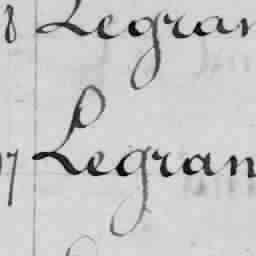 8 Legran
17 Legran